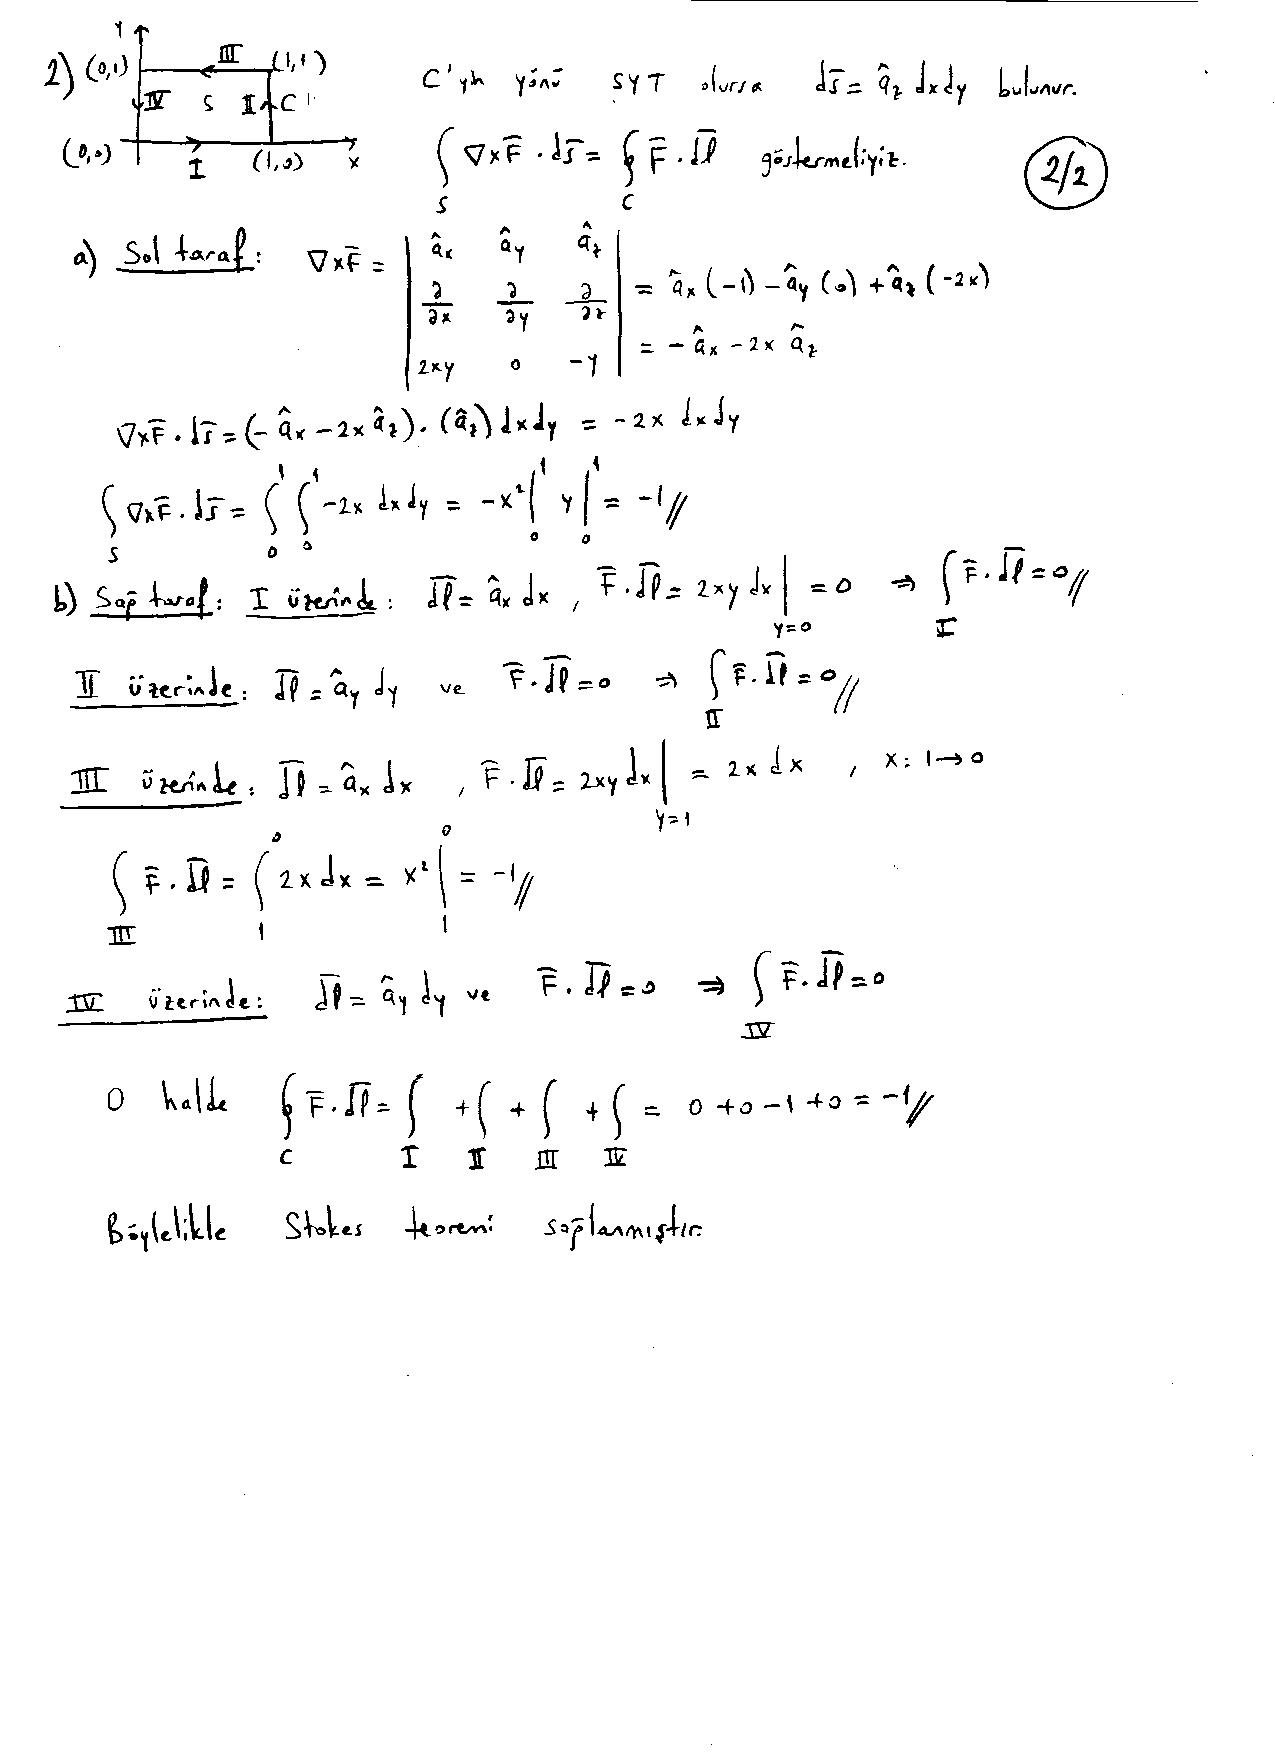 2) Y (0,1) III (1,1) IV S II C (0,0) I (1,0) x
C'yn yönü SYT olursa d̄s = â_z dxdy bulunur.
∫_S ∇×F̄ · d̄s = ∮_C F̄ · d̄l göstermeliyiz.
2/2
a) Sol taraf: ∇×F̄ = | â_x â_y â_z ; ∂/∂x ∂/∂y ∂/∂z ; 2xy 0 -y | = â_x (-1) - â_y (0) + â_z (-2x)
= - â_x - 2x â_z
∇×F̄ · d̄s = (- â_x - 2x â_z) · (â_z) dxdy = -2x dxdy
∫_S ∇×F̄ · d̄s = ∫_0^1 ∫_0^1 -2x dxdy = -x² |_0^1 y |_0^1 = -1//
b) Sağ taraf: I üzerinde: d̄l = â_x dx , F̄ · d̄l = 2xy dx |_{y=0} = 0 ⇒ ∫_I F̄ · d̄l = 0//
II üzerinde: d̄l = â_y dy ve F̄ · d̄l = 0 ⇒ ∫_II F̄ · d̄l = 0//
III üzerinde: d̄l = â_x dx , F̄ · d̄l = 2xy dx |_{y=1} = 2x dx , x: 1→0
∫_III F̄ · d̄l = ∫_1^0 2x dx = x² |_1^0 = -1//
IV üzerinde: d̄l = â_y dy ve F̄ · d̄l = 0 ⇒ ∫_IV F̄ · d̄l = 0
O halde ∮_C F̄ · d̄l = ∫_I + ∫_II + ∫_III + ∫_IV = 0 + 0 - 1 + 0 = -1//
Böylelikle Stokes teoremi sağlanmıştır.